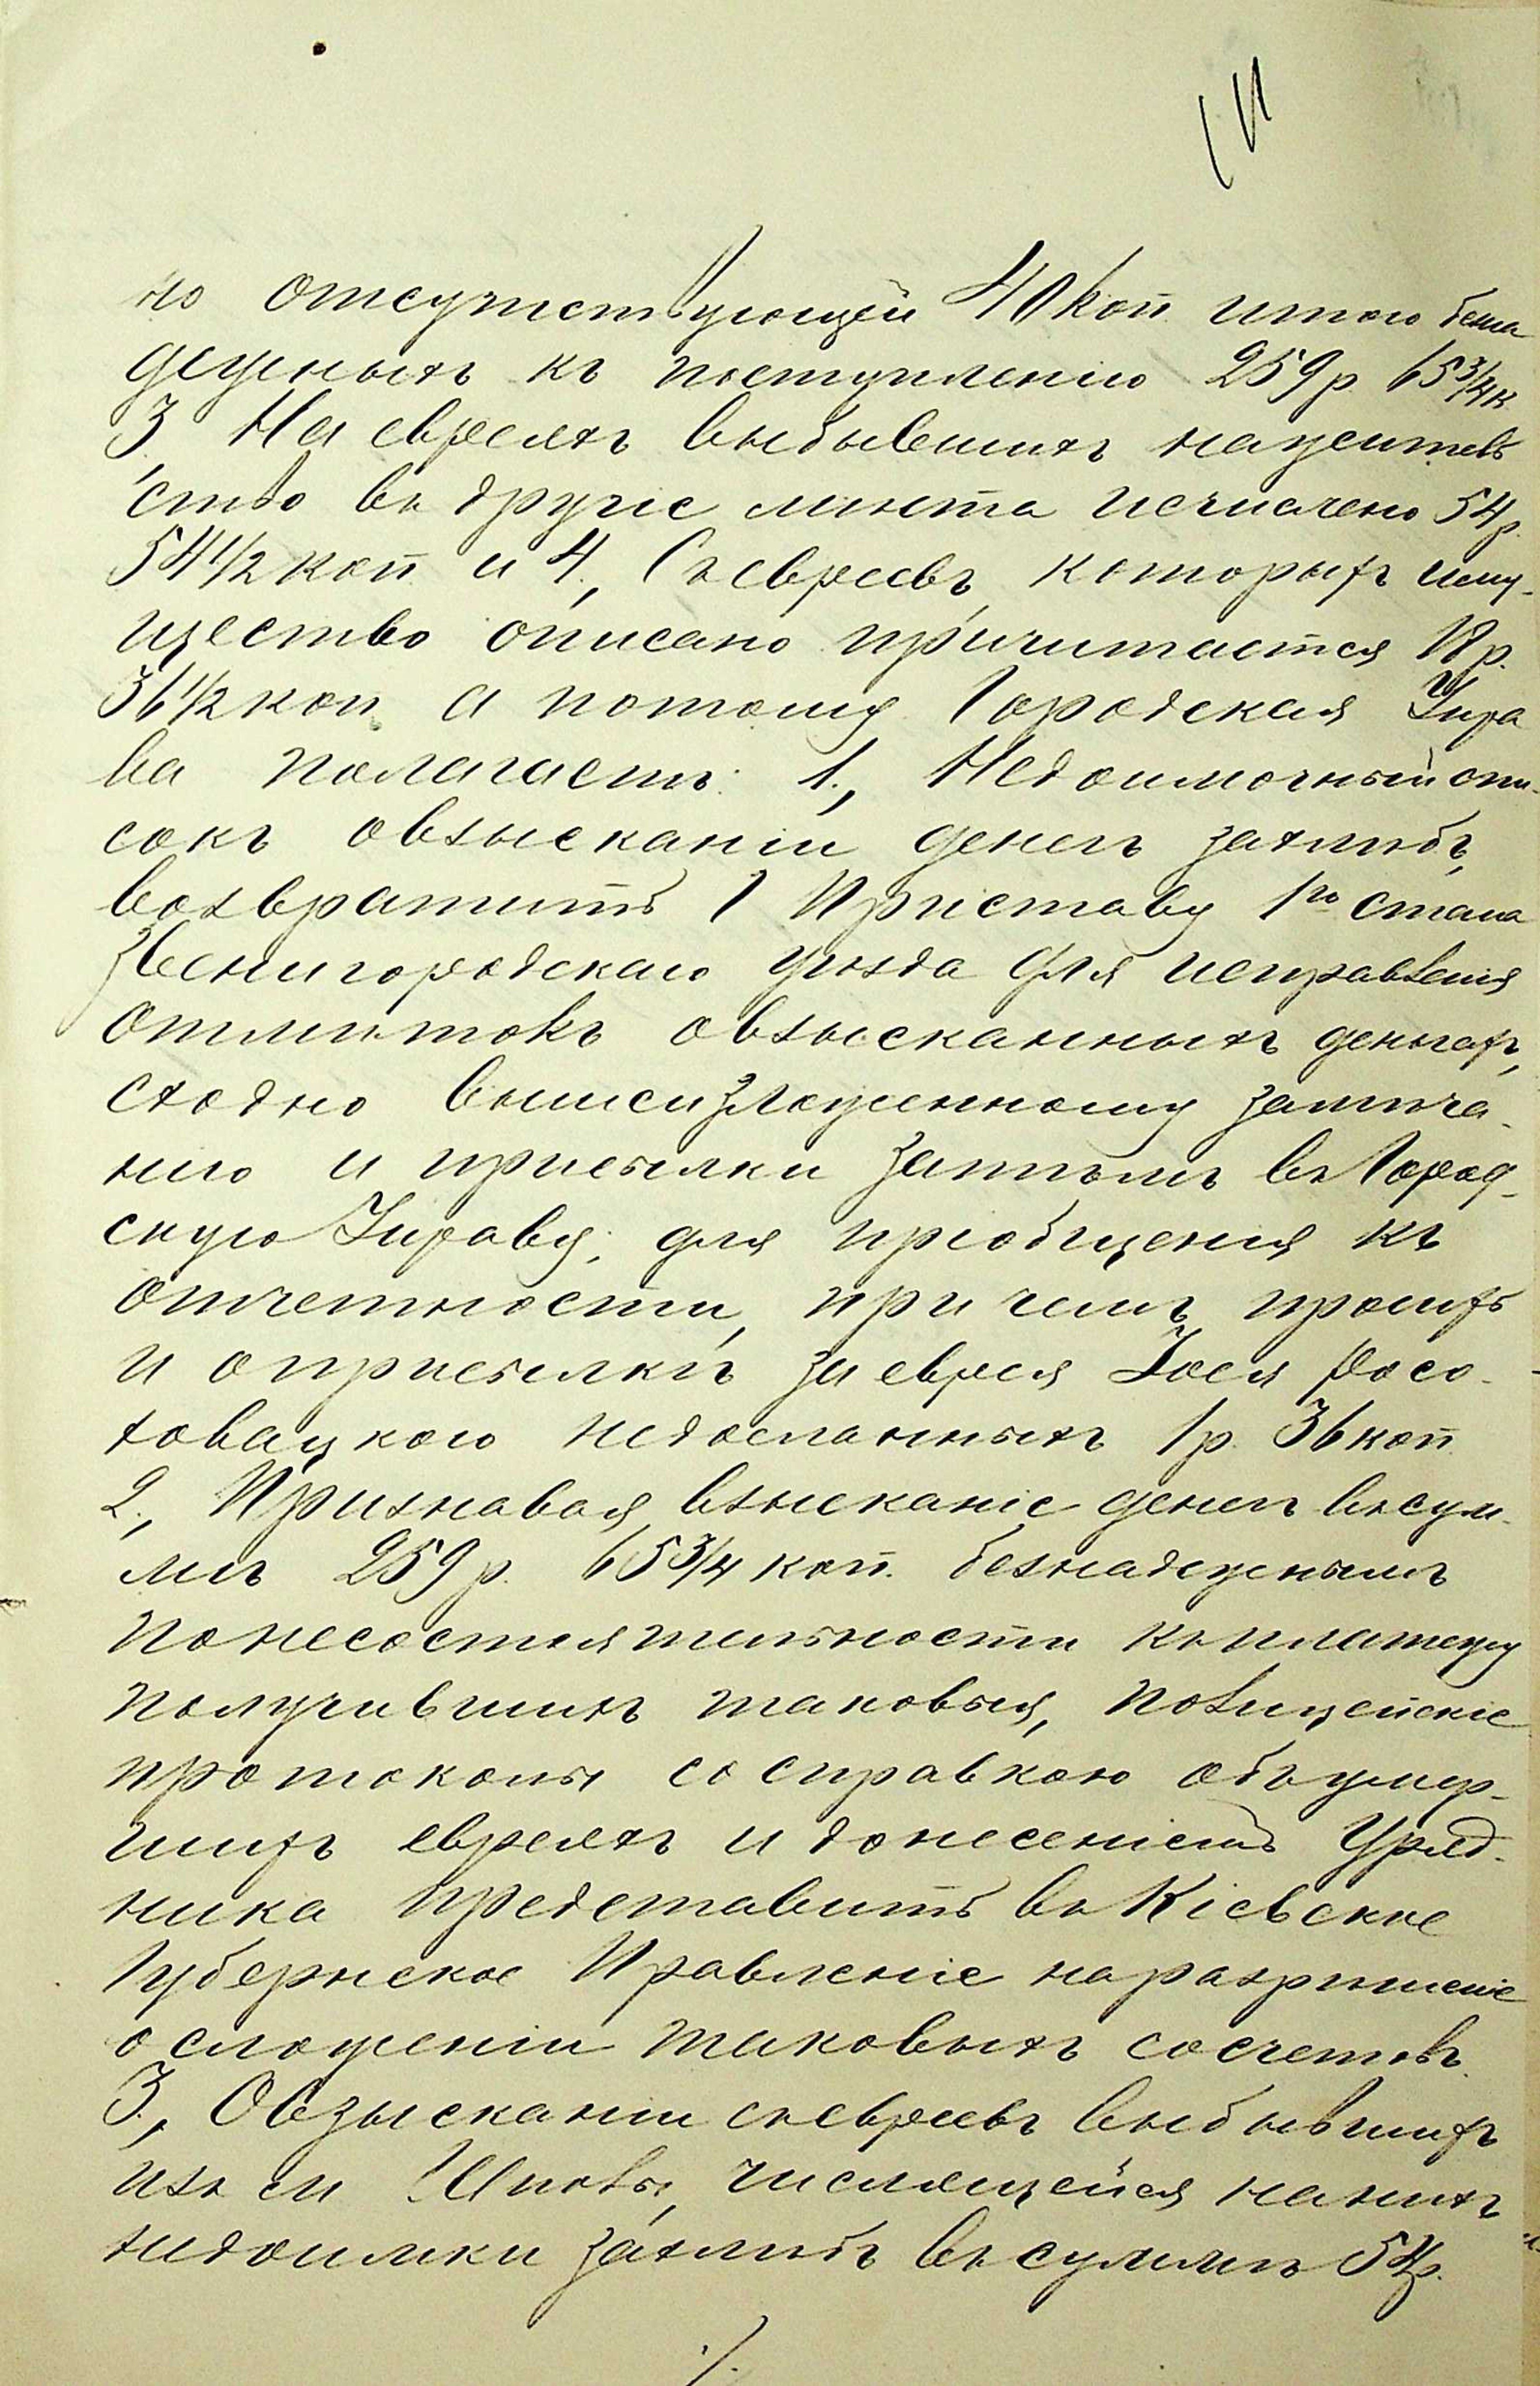 но отсутствующей 40 коп итого безна
дежныхъ къ поступленію 259 р. 65 3/4 к.
3 На евреяхъ выбывшихъ нажитель
ство въ другіе мѣста исчислено 54 р.
54 1/2 коп и 4., Съ евреевъ, которыхъ иму-
щество описано причитается 18 р.
36 1/2 коп а потому Городская Упра
ва полагаетъ: 1., Недоимочный спи-
сокъ овзысканіи денегъ захлѣбъ,
возвратить Г Приставу 1го стана
Звенигородскаго уѣзда для исправленія
отмѣтокъ овзысканныхъ деньгахъ,
сходно вышеизложенному замѣча-
нію и присылки затѣмъ въ Город-
скую Управу, для пріобщенія къ
отчетности, при чемъ просить
и оприсылкѣ за еврея Іося Росо-
ховацкого недосланныхъ 1 р. 36 коп.
2., Признавая взысканіе денегъ въсум-
мѣ 259 р. 65 3/4 коп. безнадежнымъ
понесостоятельности къплатежу
получившихъ таковыя, полицейскіе
протоколы со справкою объумер-
шихъ евреяхъ и донесеніемъ Уряд-
ника представить въ Кіевское
Губернское Правленіе наразрѣшеніе
о сложеніи таковыхъ сосчетовъ.
3., Овзысканіи съевреевъ выбывшихъ
изъ м числящейся нанихъ
недоимки захлѣбъ въ суммѣ 54 р.
./.